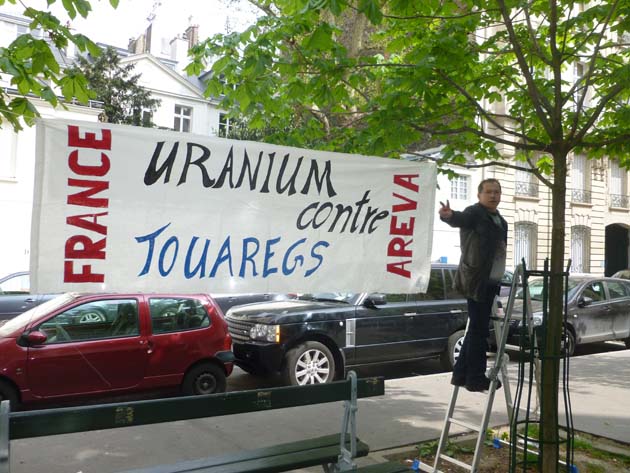 FRANCE
URANIUM
contre
TOUAREGS
AREVA